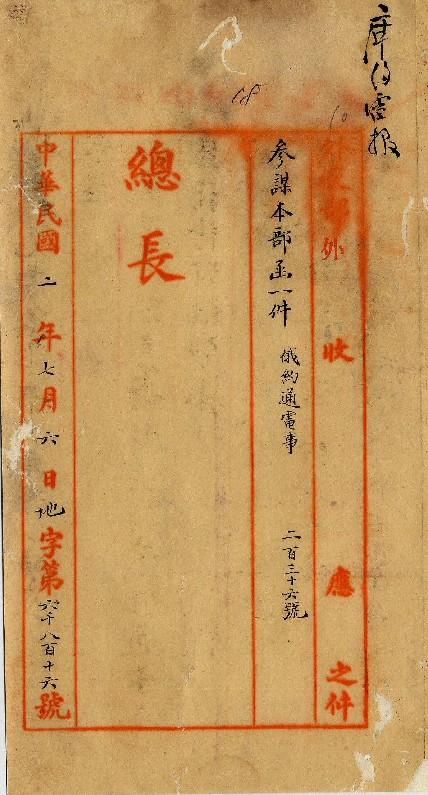 庫約電報
68
外
收 應 之件
參謀本部函一件 俄約通電事 二百三十六號
總長
中華民國二年七月六日地字第六千八百十六號